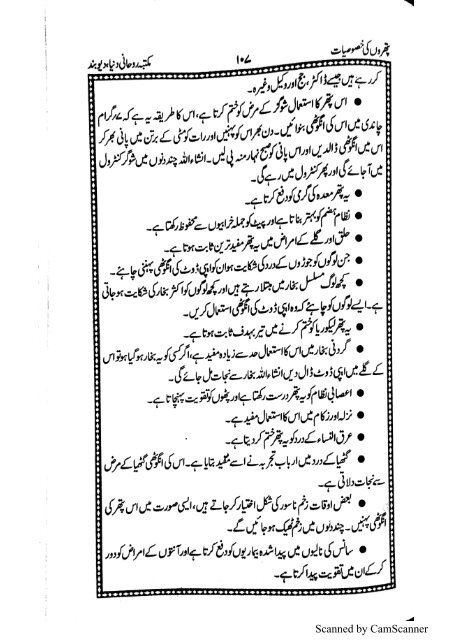 پتھروں کی خصوصیات
۱۰۷
مکتبہ روحانی دنیا، دیوبند
کر رہے ہیں جیسے ڈاکٹر، جج اور وکیل وغیرہ۔
● اس پتھر کا استعمال شوگر کے مرض کو ختم کرتا ہے، اس کا طریقہ یہ ہے کہ ۷ رگرام
چاندی میں اس کی انگوٹھی بنوائیں۔ دن بھر اس کو پہنیں اور رات کو مٹی کے برتن میں پانی بھر کر
اس میں انگوٹھی ڈالدیں اور اس پانی کو صبح نہار منہ پی لیں۔ انشاء اللہ چند دنوں میں شوگر کنٹرول
میں آجائے گی اور پھر کنٹرول میں رہے گی۔
● یہ پتھر معدہ کی گرمی کو دفع کرتا ہے۔
● نظام ہضم کو بہتر بناتا ہے اور پیٹ کو جملہ خرابیوں سے محفوظ رکھتا ہے۔
● حلق اور گلے کے امراض میں یہ پتھر مفید ترین ثابت ہوتا ہے۔
● جن لوگوں کو جوڑوں کے درد کی شکایت ہو ان کو اپی ڈوٹ کی انگوٹھی پہننی چاہئے۔
● کچھ لوگ مسلسل بخار میں مبتلا رہتے ہیں اور کچھ لوگوں کو اکثر بخار کی شکایت ہو جاتی
ہے۔ ایسے لوگوں کو چاہئے کہ وہ اپی ڈوٹ کی انگوٹھی استعمال کریں۔
● یہ پتھر لیکوریا کو ختم کرنے میں تیر بہدف ثابت ہوتا ہے۔
● گردنی بخار میں اس کا استعمال حد سے زیادہ مفید ہے، اگر کسی کو یہ بخار ہو گیا ہو تو اس
کے گلے میں اپی ڈوٹ ڈال دیں انشاء اللہ بخار سے نجات مل جائے گی۔
● اعصابی نظام کو یہ پتھر درست رکھتا ہے اور پٹھوں کو تقویت پہنچاتا ہے۔
● نزلہ اور زکام میں اس کا استعمال مفید ہے۔
● عرق النساء کے درد کو یہ پتھر ختم کر دیتا ہے۔
● گٹھیا کے درد میں ارباب تجربہ نے اسے مفید بتایا ہے۔ اس کی انگوٹھی گٹھیا کے مرض
سے نجات دلاتی ہے۔
● بعض اوقات زخم ناسور کی شکل اختیار کر جاتے ہیں، ایسی صورت میں اس پتھر کی
انگوٹھی پہنیں۔ چند دنوں میں زخم ٹھیک ہو جائیں گے۔
● سانس کی نالیوں میں پیدا شدہ بیماریوں کو دفع کرتا ہے اور آنتوں کے امراض کو دور
کر کے ان میں تقویت پیدا کرتا ہے۔
Scanned by CamScanner